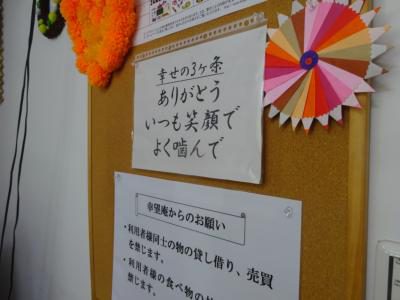 幸せの3ヶ条
ありがとう
いつも笑顔で
よく噛んで
幸望庵からのお願い
・利用者様同士の物の貸し借り、売買
を禁じます。
・利用者様の食べ物の
禁じます。